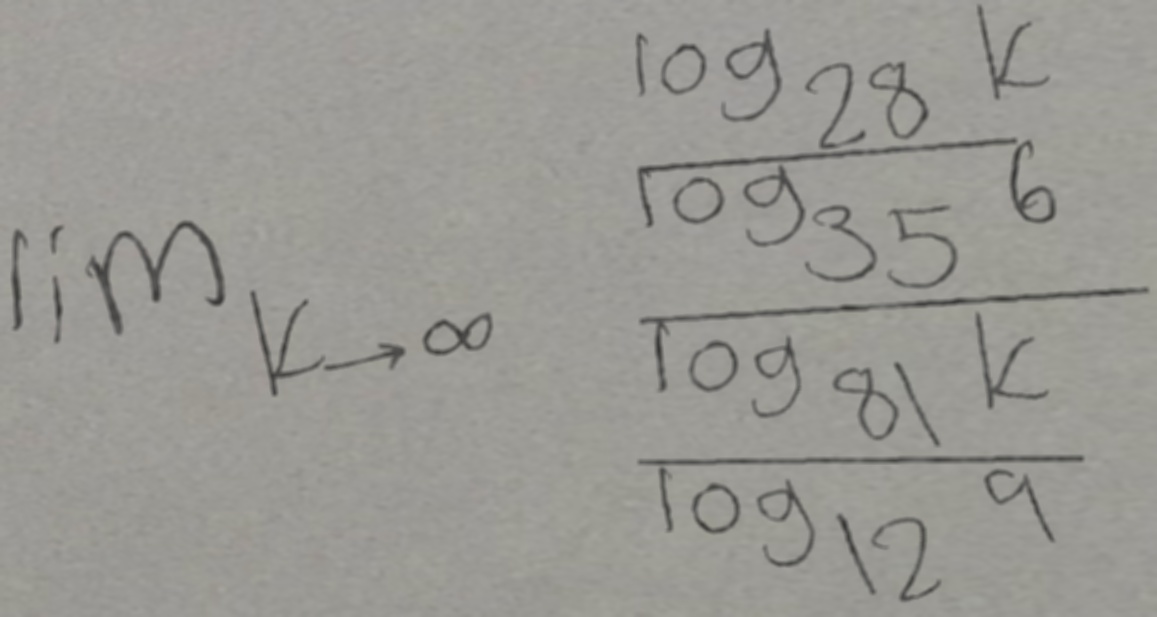 lim k→∞ log 28 k
log 35 6
log 81 k
log 12 9